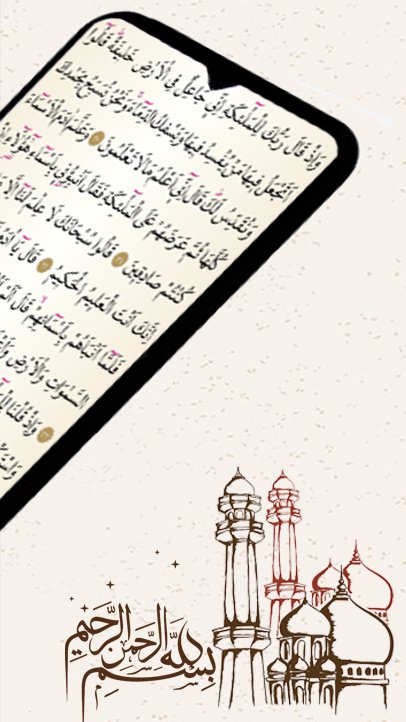 وَإِذْ قَالَ رَبُّكَ لِلْمَلٰٓئِكَةِ إِنِّي جَاعِلٌ فِي الْأَرْضِ خَلِيفَةً قَالُوا
أَتَجْعَلُ فِيهَا مَنْ يُفْسِدُ فِيهَا وَيَسْفِكُ الدِّمَاءَ وَنَحْنُ نُسَبِّحُ بِحَمْدِكَ
وَنُقَدِّسُ لَكَ قَالَ إِنِّي أَعْلَمُ مَا لَا تَعْلَمُونَ ٣٠ وَعَلَّمَ آدَمَ الْأَسْمَاءَ
كُلَّهَا ثُمَّ عَرَضَهُمْ عَلَى الْمَلٰٓئِكَةِ فَقَالَ أَنْبِئُونِي بِأَسْمَاءِ هٰٓؤُلَاءِ
كُنْتُمْ صَادِقِينَ ٣١ قَالُوا سُبْحَانَكَ لَا عِلْمَ لَنَا
إِنَّكَ أَنْتَ الْعَلِيمُ الْحَكِيمُ ٣٢ قَالَ
فَلَمَّا أَنْبَأَهُمْ بِأَسْمَائِهِمْ قَالَ
السَّمٰوَاتِ وَالْأَرْضِ
٣٣ وَإِذْ قُلْنَا
بِسْمِ اللَّهِ الرَّحْمٰنِ الرَّحِيمِ